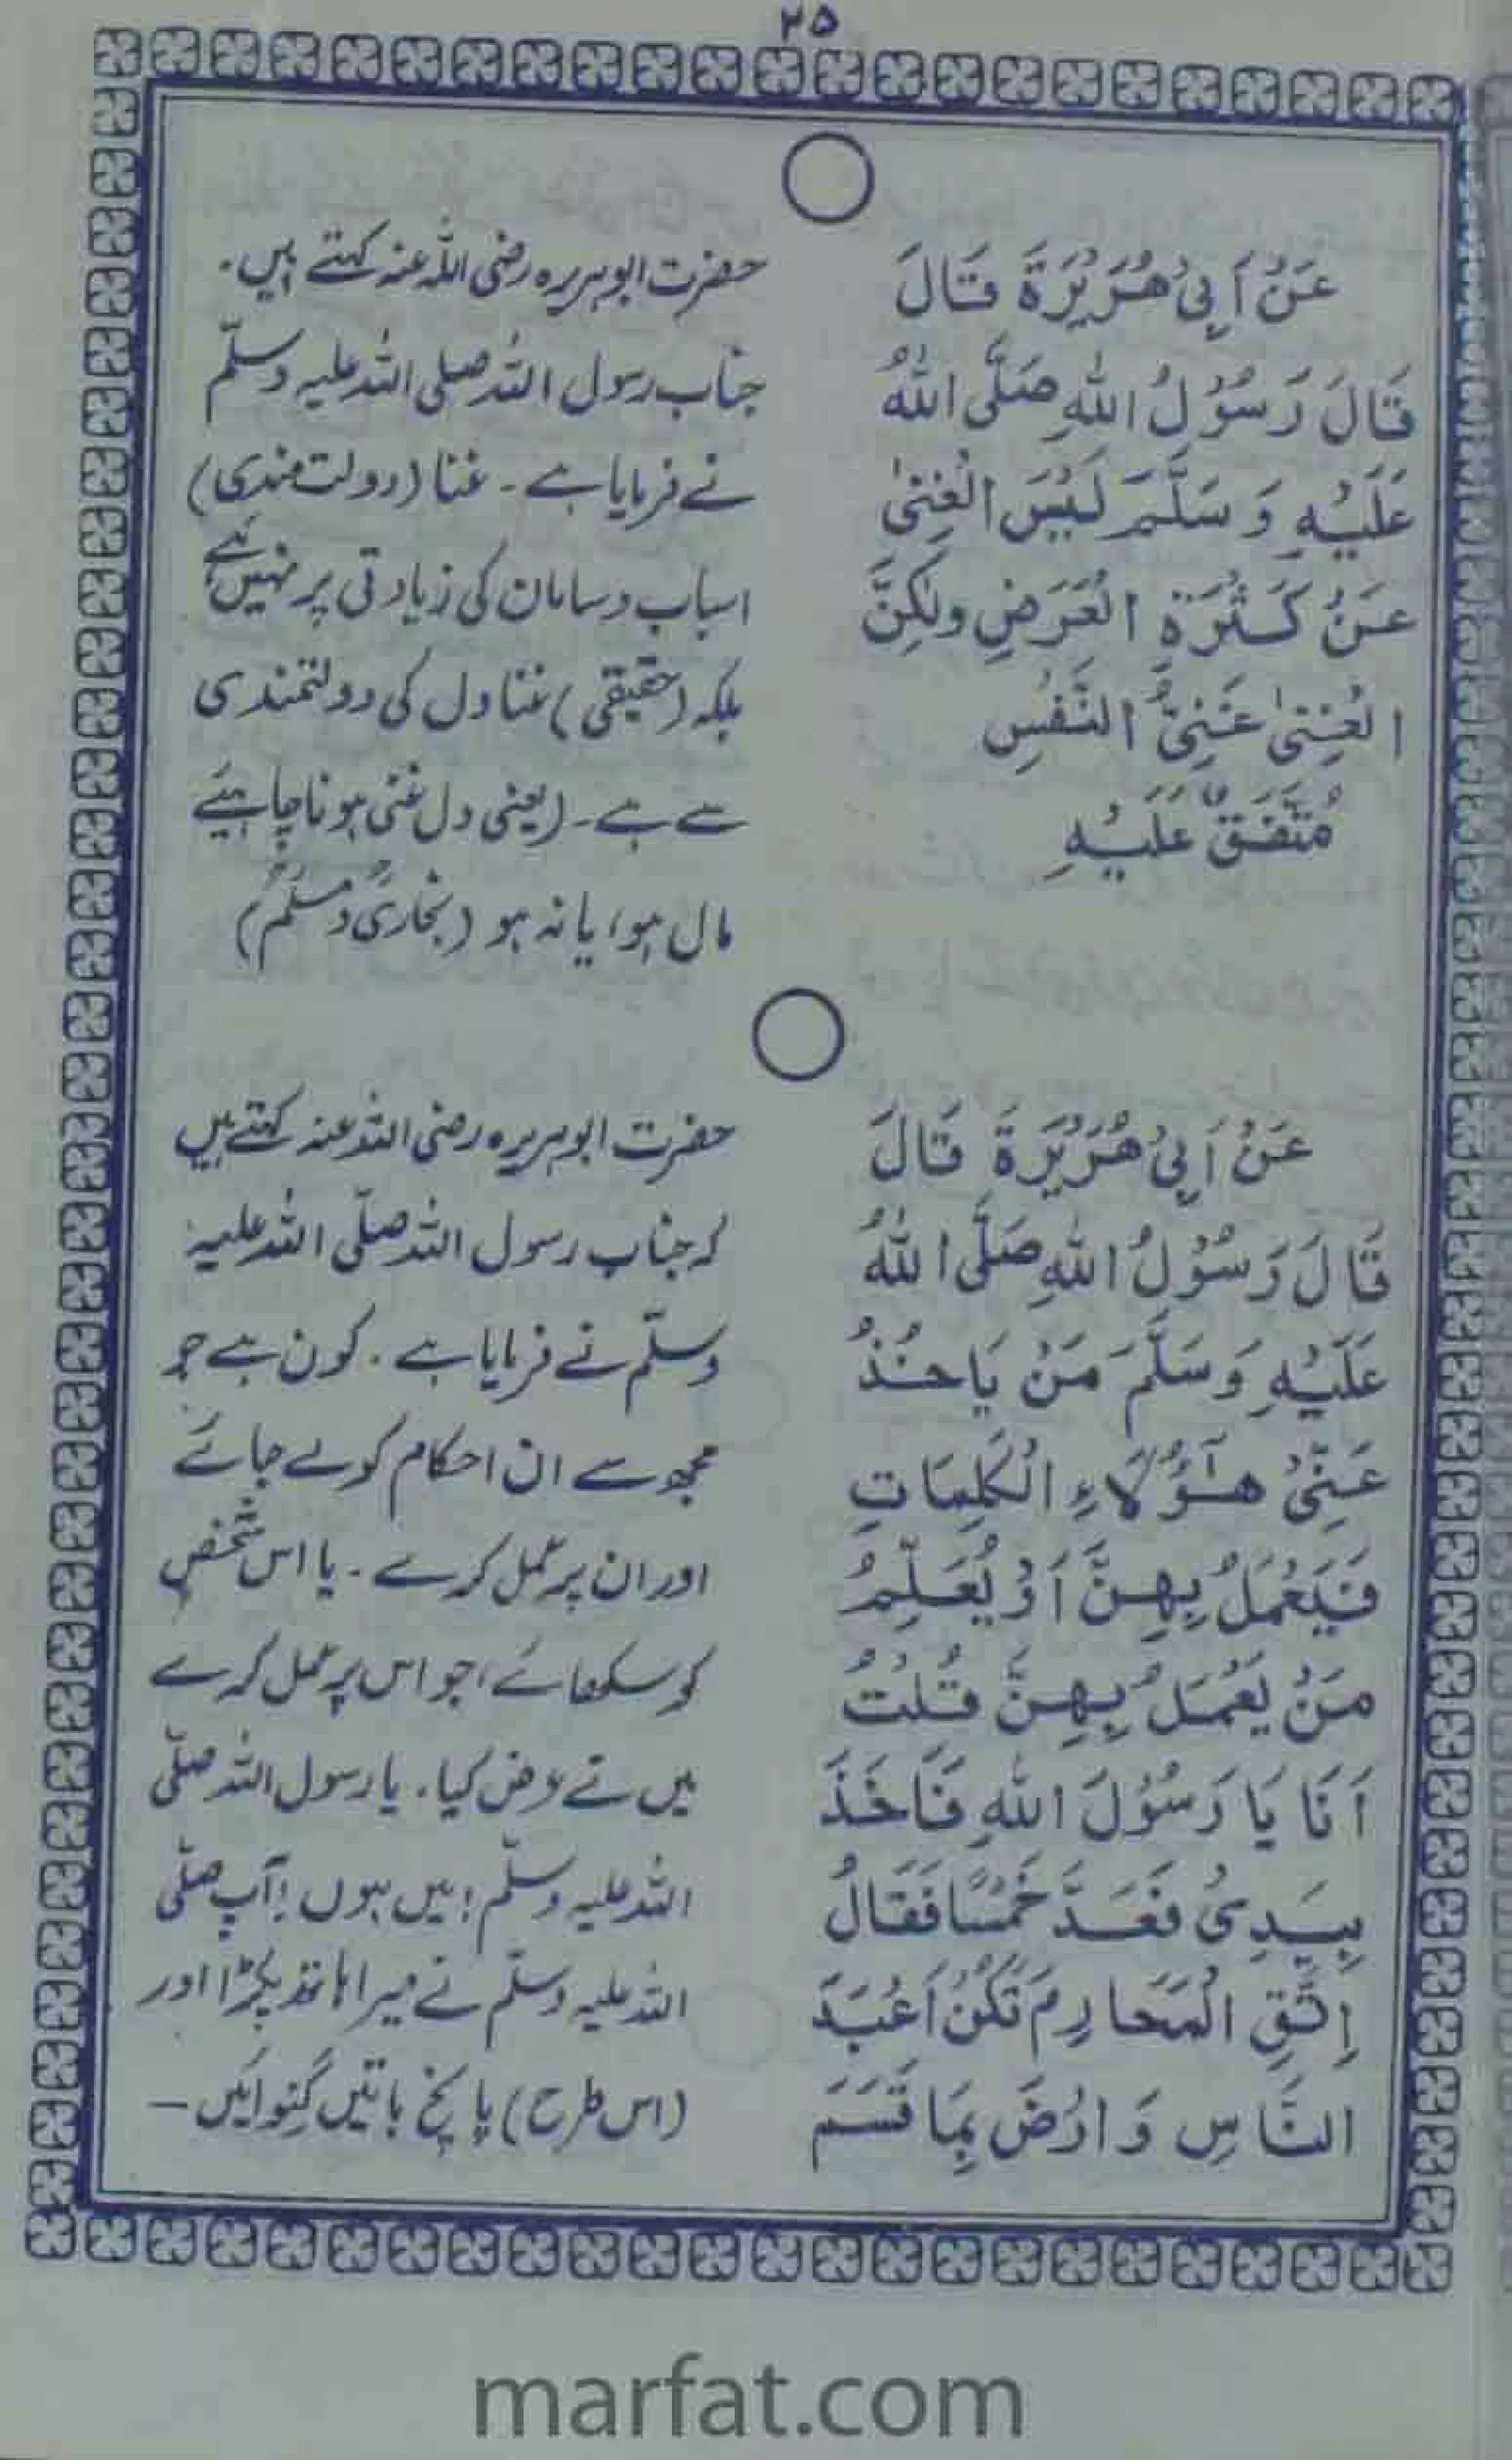 ۲۵
عَنْ اَبِیْ هُرَیْرَةَ قَالَ
قَالَ رَسُوْلُ اللهِ صَلَّی اللهُ
عَلَیْهِ وَ سَلَّمَ لَیْسَ الْغِنٰی
عَنْ کَثْرَةِ الْعَرَضِ ولٰکِنَّ
الْغِنٰی غَنِیُّ النَّفْسِ
مُتَّفَقٌ عَلَیْهِ
حضرت ابوہریرہ رضی اللہ عنہ کہتے ہیں۔
جناب رسول اللہ صلی اللہ علیہ وسلّم
نے فرمایا ہے۔ غنا (دولت مندی)
اسباب و سامان کی زیادتی پر نہیں ہے
بلکہ (حقیقی) غنا دل کی دولتمندی
سے ہے۔ (یعنی دل غنی ہونا چاہیئے
مال ہو، یا نہ ہو (بخاری و مسلم)
عَنْ اَبِیْ هُرَیْرَةَ قَالَ
قَالَ رَسُوْلُ اللهِ صَلَّی اللهُ
عَلَیْهِ وَسَلَّمَ مَنْ یَاخُذُ
عَنِّیْ هٰٓؤُلَاءِ الْکَلِمَاتِ
فَیَعْمَلُ بِهِنَّ اَوْ یُعَلِّمُ
مَنْ یَعْمَلُ بِهِنَّ قُلْتُ
اَنَا یَا رَسُوْلَ اللهِ فَاَخَذَ
بِیَدِیْ فَعَدَّ خَمْسًا فَقَالُ
اِتَّقِ الْمَحَارِمَ تَکُنْ اَعْبَدَ
النَّاسِ وَارْضَ بِمَا قَسَمَ
حضرت ابوہریرہ رضی اللہ عنہ کہتے ہیں
کہ جناب رسول اللہ صلّی اللہ علیہ
وسلّم نے فرمایا ہے۔ کون ہے جو
مجھ سے ان احکام کو لے جائے
اور ان پر عمل کرے۔ یا اس شخص
کو سکھائے، جو اس پر عمل کرے
میں نے عرض کیا۔ یا رسول اللہ صلّی
اللہ علیہ وسلّم! میں ہوں! آپ صلّی
اللہ علیہ وسلّم نے میرا ہاتھ پکڑا اور
(اس طرح) پانچ باتیں گنوائیں —
marfat.com